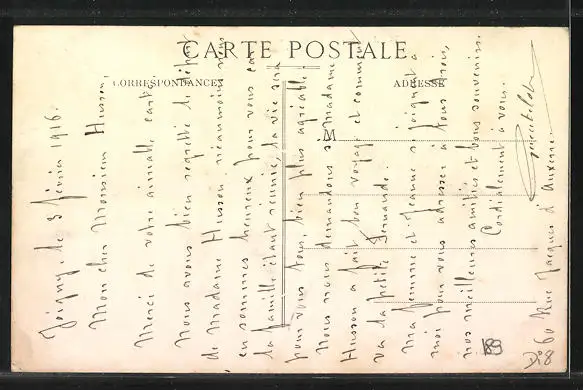 CARTE POSTALE
CORRESPONDANCE
ADRESSE
M
Joigny, le 3 février 1916.
Mon cher Monsieur Husson,
Merci de votre aimable carte,
nous avons bien regretté le départ
de Madame Husson, néanmoins nous
en sommes heureux pour vous car
la famille étant réunie, la vie sera
pour vous tous bien plus agréable
Nous nous demandons si Madame
Husson a fait bon voyage et comment
va la petite Fernande.
Ma femme et Jeanne se joignent à
moi pour vous adresser à tous trois,
nos meilleures amitiés et bons souvenirs.
Cordialement à vous.
60 Rue Jacques d'Auxerre.